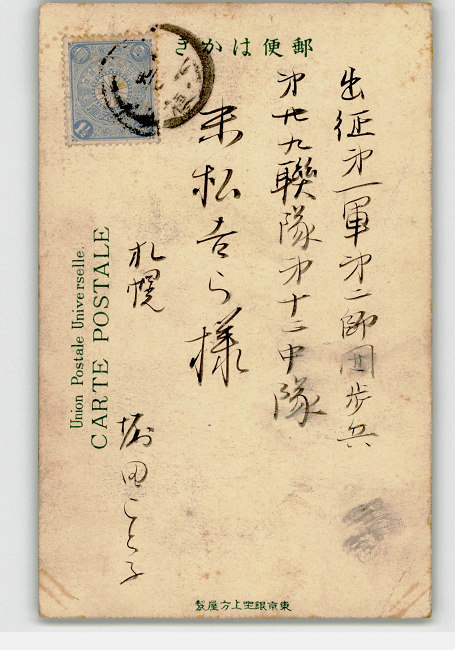 郵便はかき
出征第一軍第二師団歩兵
第廿九聯隊第十二中隊
末松吉ら様
札幌
堀田ことふ
Union Postale Universelle.
CARTE POSTALE
東京銀座上方屋製
1½